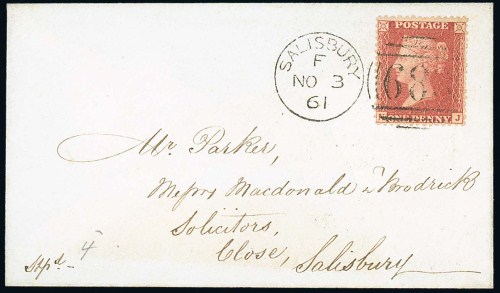 SALISBURY
F
NO 3
61
POSTAGE
68
ONE PENNY
J
Mr. Parker,
Messrs Macdonald & Brodrick
Solicitors,
Close, Salisbury
4